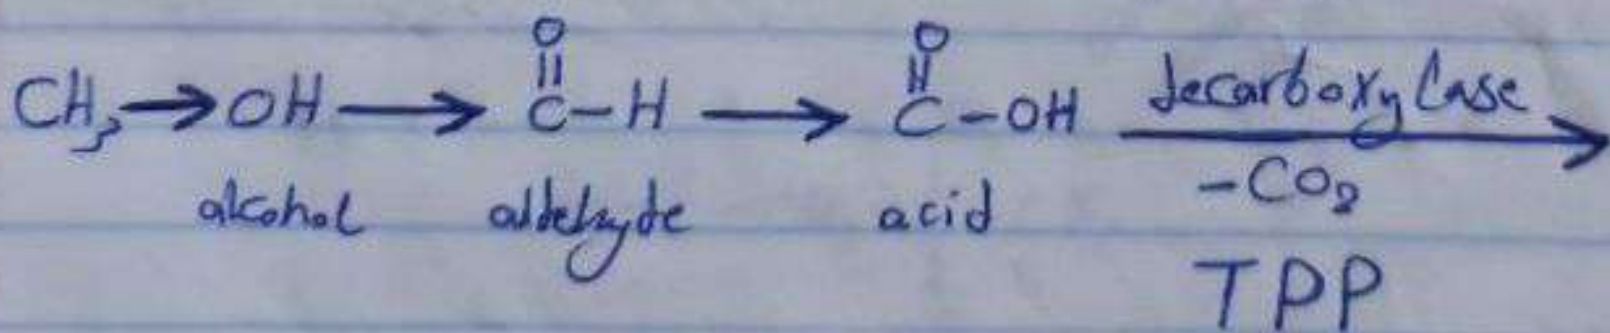 O O
CH3 → OH → C-H → C-OH decarboxylase →
alcohol aldehyde acid -CO2
TPP